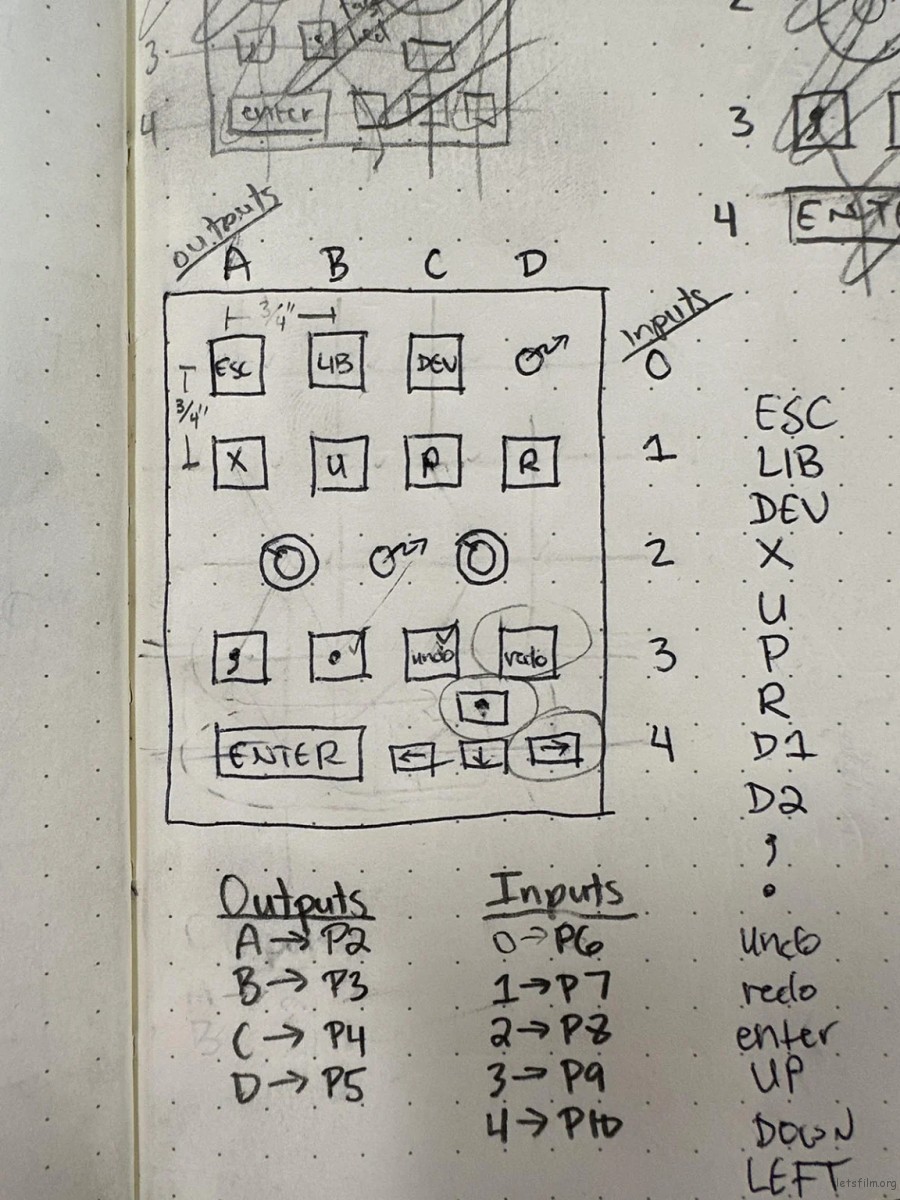 3
4
enter
2
3
,
4
outputs
A B C D
3/4"
inputs
ESC LIB DEV
0
3/4"
X U P R
1
2
, . undo redo
3
ENTER ← ↑ ↓ →
4
ESC
LIB
DEV
X
U
P
R
D1
D2
,
.
undo
redo
enter
UP
DOWN
LEFT
Outputs
A → P2
B → P3
C → P4
D → P5
Inputs
0 → P6
1 → P7
2 → P8
3 → P9
4 → P10
letsfilm.org